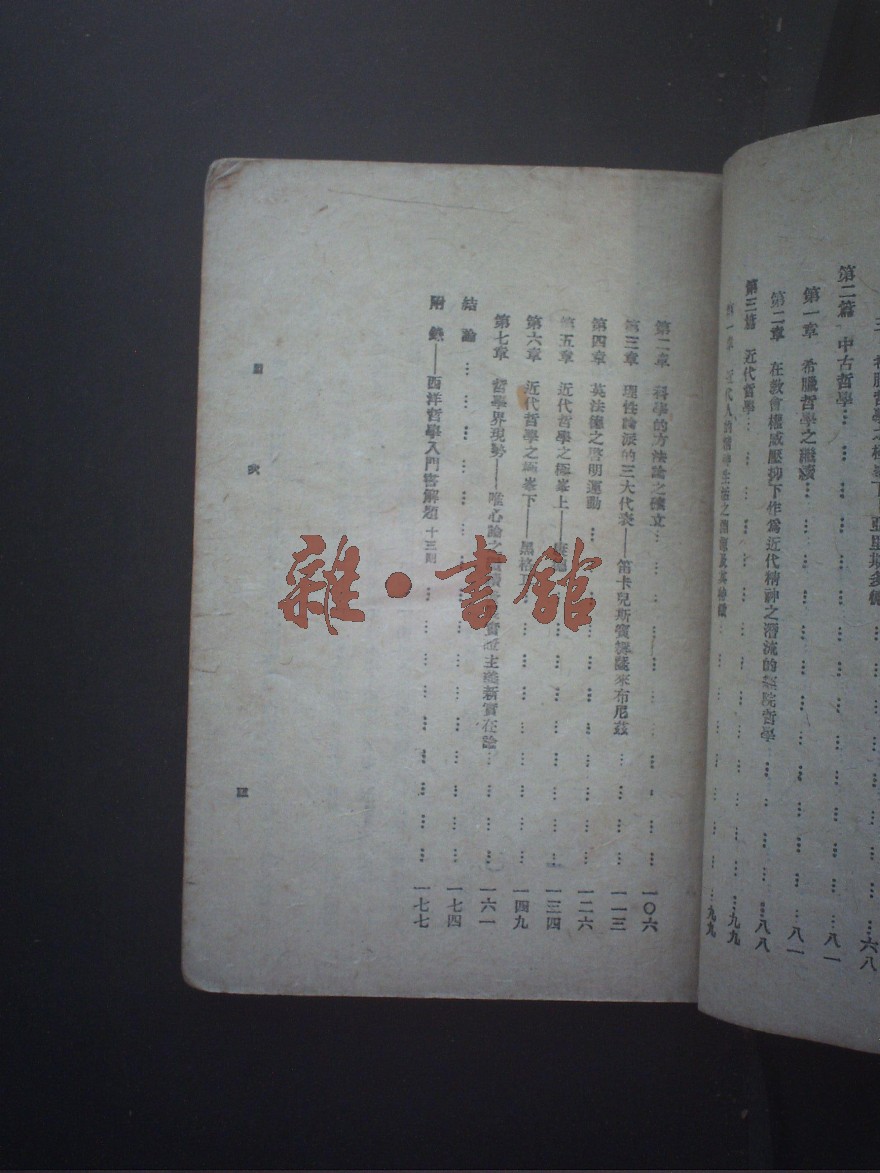 第二篇 中古哲學 八一
第一章 希臘哲學之繼續 八一
第二章 在教會權威壓抑下作爲近代精神之潛流的經院哲學 八八
第三篇 近代哲學 九九
第一章 近代人的精神生活之淵源及其特徵 九九
第二章 科學的方法論之確立 一〇六
第三章 理性論派的三大代表——笛卡兒斯賓挪薩來布尼茲 一一三
第四章 英法德之啓明運動 一二六
第五章 近代哲學之極峯上——康德 一三四
第六章 近代哲學之極峯下——黑格耳 一四九
第七章 哲學界現勢——唯心論之 主義新實在論 一六一
結論 一七四
附錄——西洋哲學入門書解題十三則 一七七
目次
雜·書館